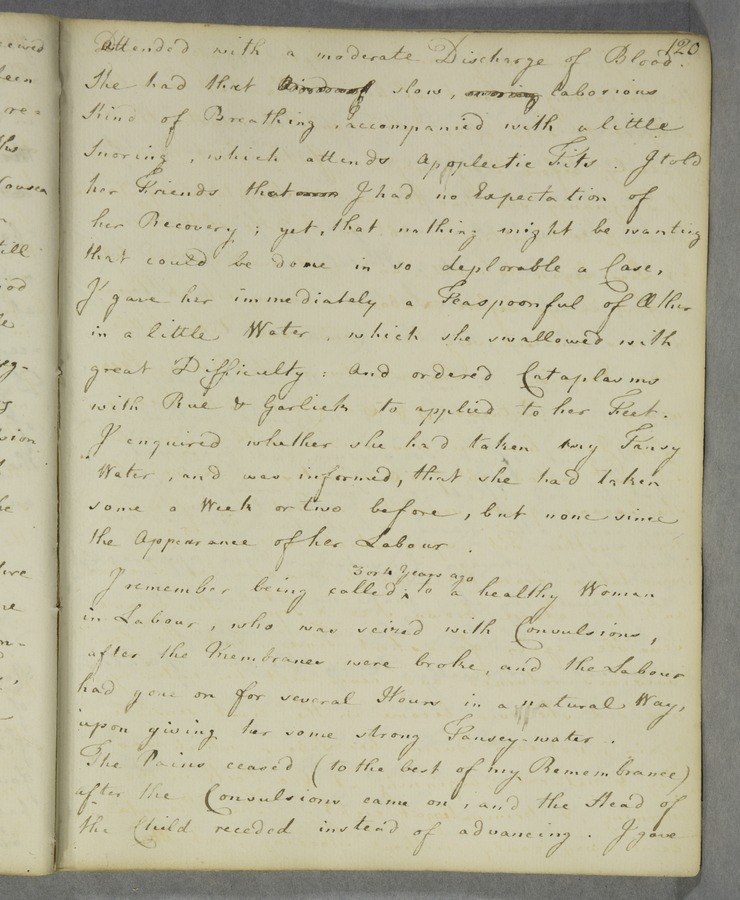 120
Attended with a moderate Discharge of Blood.
She had that slow, laborious
Kind of Breathing, accompanied with a little
Snoring, which attends Apoplectic Fits. I told
her Friends that I had no Expectation of
her Recovery; yet, that nothing might be wanting
that could be done in so deplorable a Case,
I gave her immediately a Teaspoonful of Æther
in a little Water, which she swallowed with
great Difficulty: And ordered Cataplasms
with Rue & Garlick to applied to her Feet.
I enquired whether she had taken any Tansy
Water, and was informed, that she had taken
some a Week or two before, but none since
the Appearance of her Labour.
3 or 4 Years ago
I remember being called ‸ to a healthy Woman
in Labour, who was seized with Convulsions,
after the Membranes were broke, and the Labour
had gone on for several Hours in a natural Way,
upon giving her some strong Tansey-water.
The Pains ceased (to the best of my Remembrance)
after the Convulsions came on, and the Head of
the Child receded instead of advancing. I gave